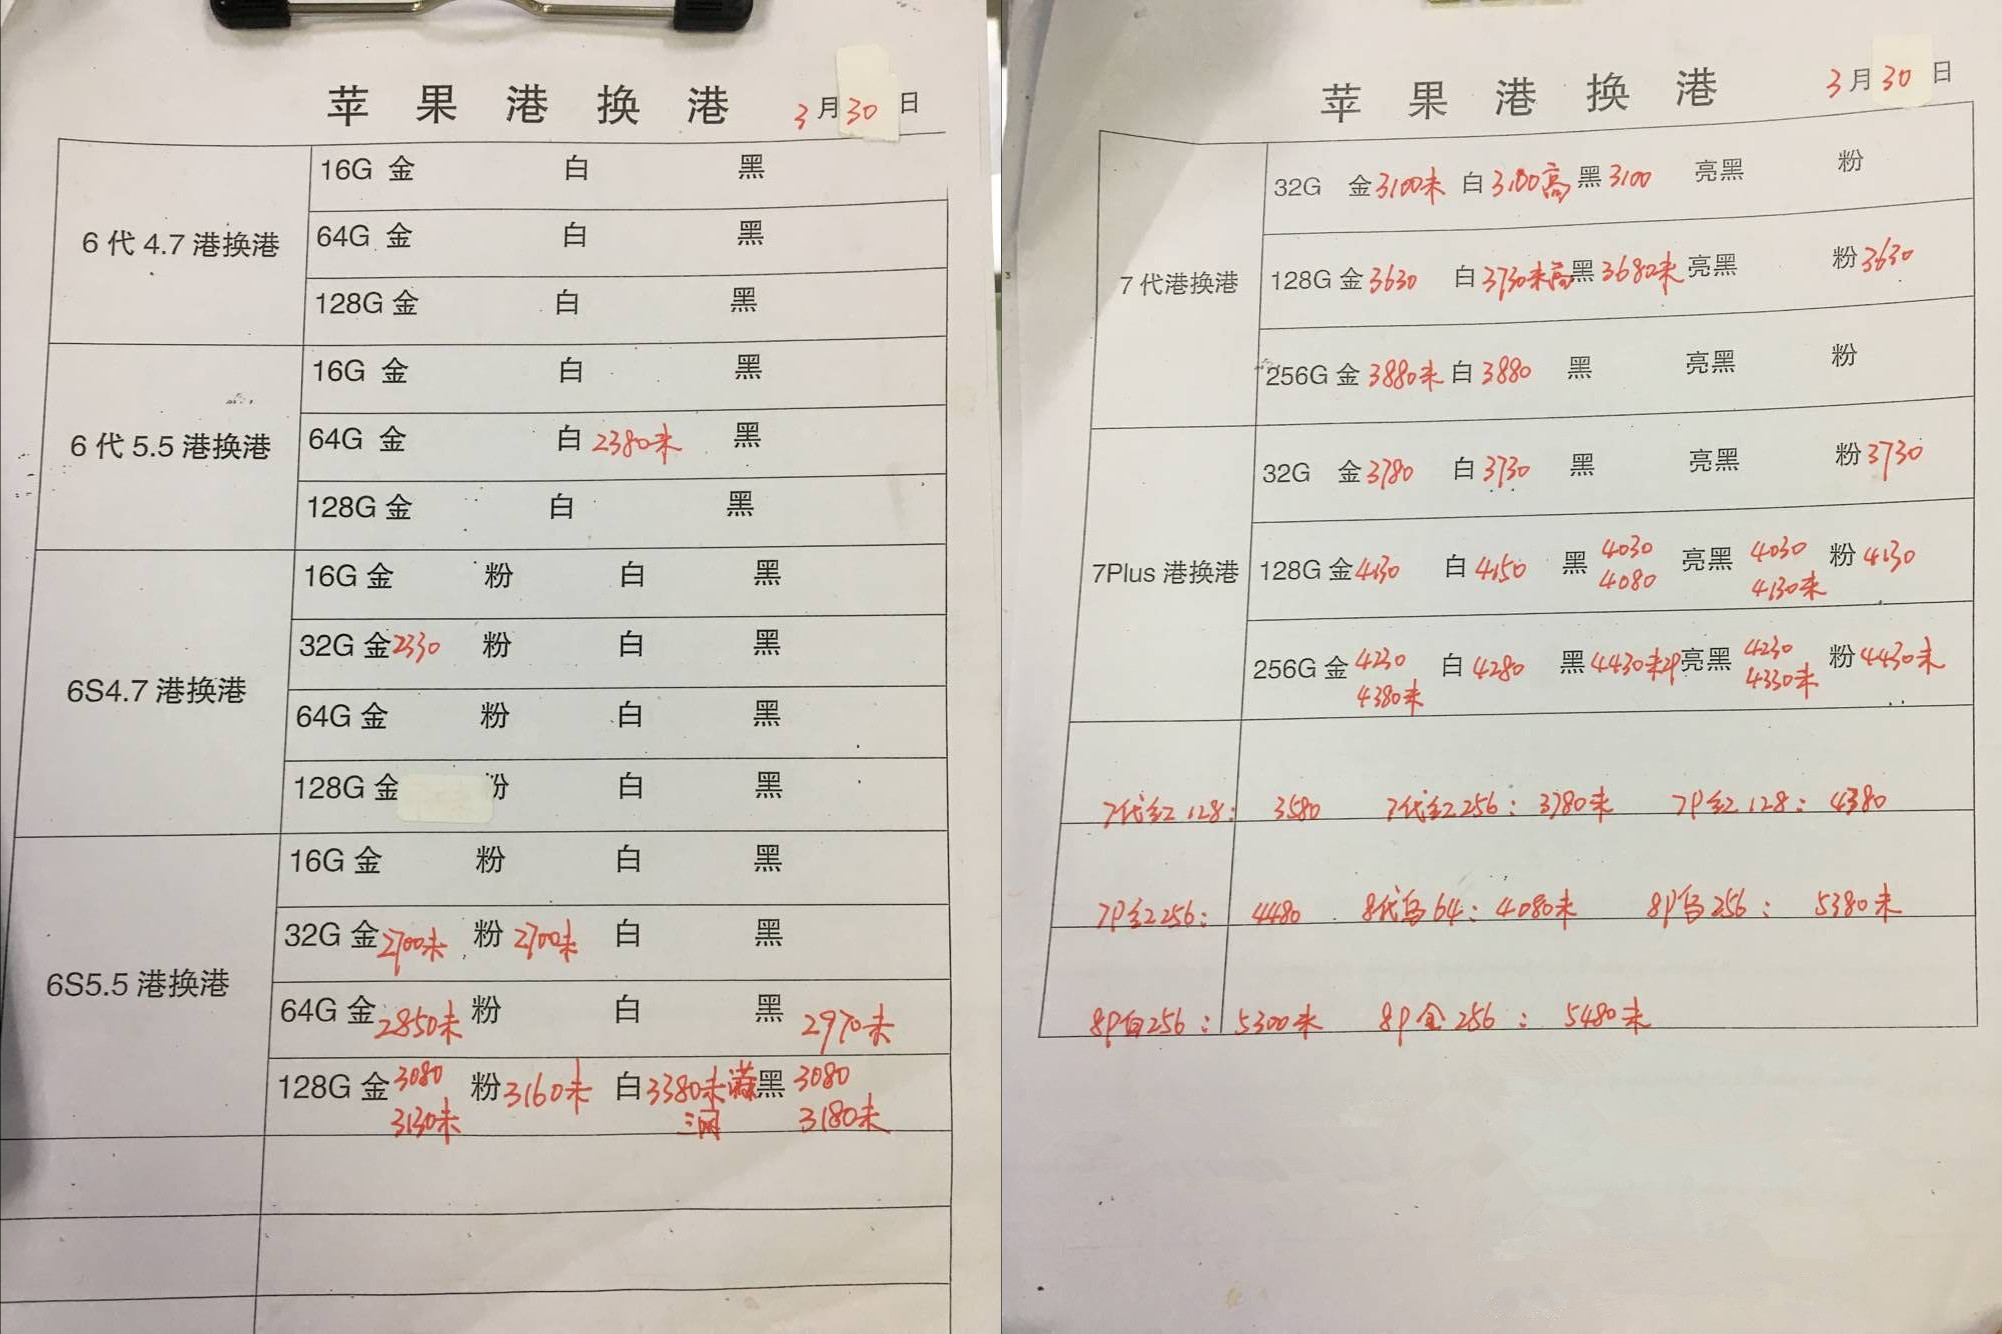 苹果港换港 3月30日
6代4.7港换港
16G 金 白 黑
64G 金 白 黑
128G 金 白 黑
6代5.5港换港
16G 金 白 黑
64G 金 白 2380未 黑
128G 金 白 黑
6S4.7港换港
16G 金 粉 白 黑
32G 金 2330 粉 白 黑
64G 金 粉 白 黑
128G 金 粉 白 黑
6S5.5港换港
16G 金 粉 白 黑
32G 金 2700未 粉 2700未 白 黑
64G 金 2850未 粉 白 黑 2970未
128G 金 3080 粉 3160未 白 3380未 黑 3080
3130未 3180未
苹果港换港 3月30日
7代港换港
32G 金 3100未 白 3180高 黑 3100 亮黑 粉
128G 金 3630 白 3730未高 黑 3680未 亮黑 粉 3630
256G 金 3880未 白 3880 黑 亮黑 粉
7Plus港换港
32G 金 3780 白 3730 黑 亮黑 粉 3730
128G 金 4130 白 4150 黑 4030 亮黑 4030 粉 4130
4080 4130未
256G 金 4230 白 4280 黑 4430未 亮黑 4230 粉 4430未
4380未 4330未
7代红128: 3580 7代红256: 3780未 7P红128: 4380
7P红256: 4480 8代 64: 4080未 8P 256: 5380未
8P白256: 5300未 8P金256: 5480未